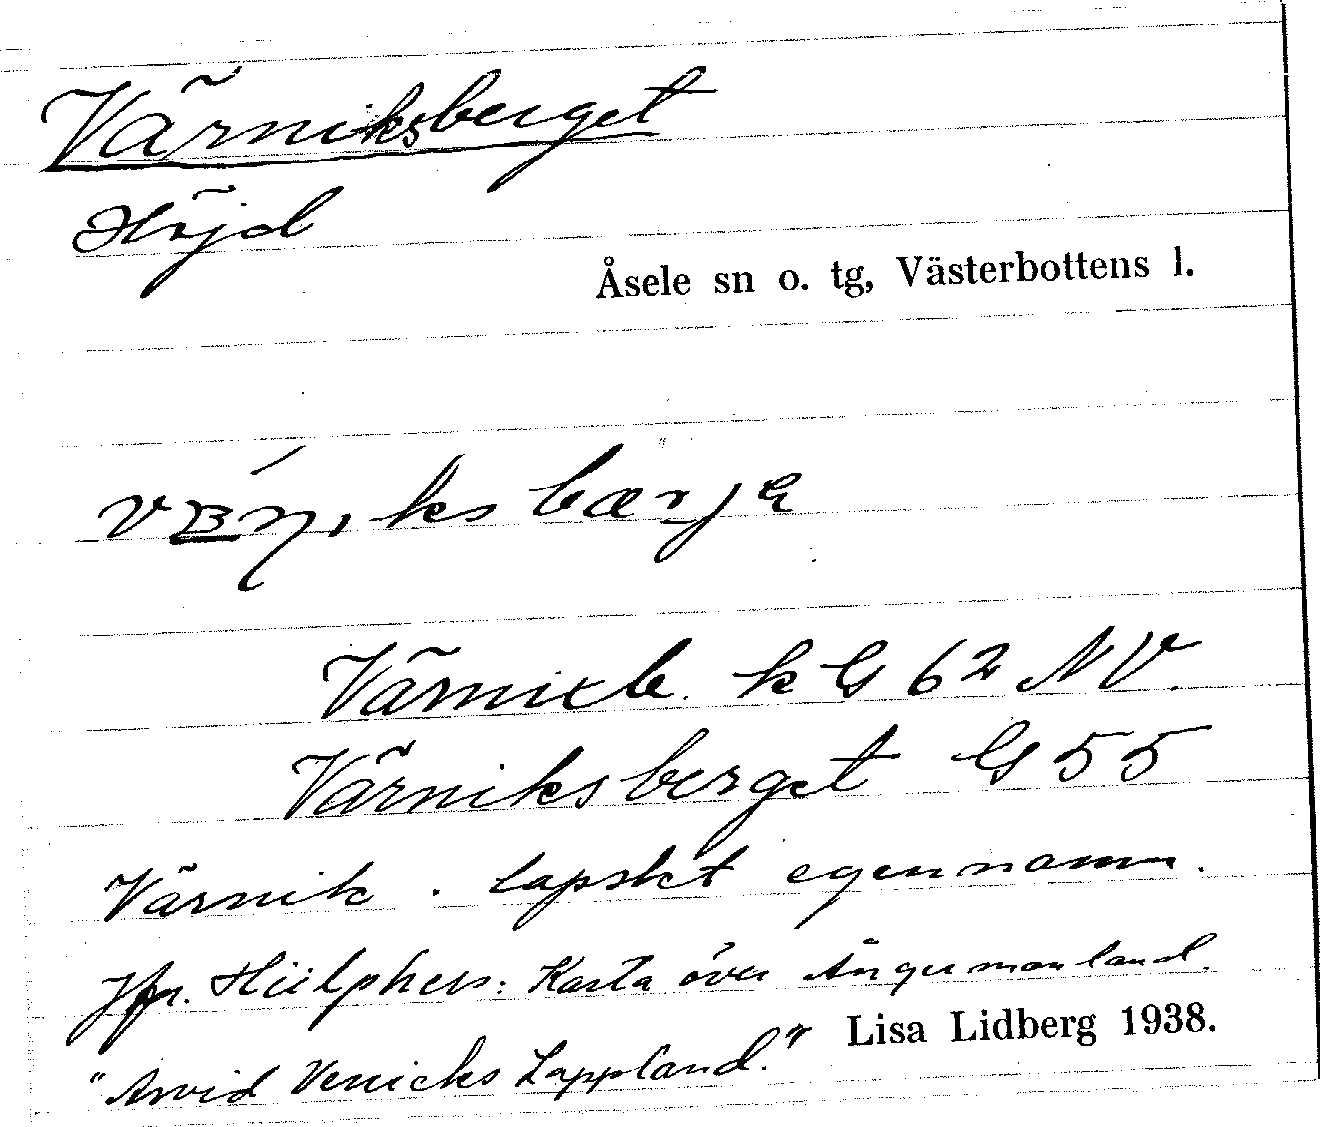 Värniksberget
Höjd
Åsele sn o. tg, Västerbottens l.
Värnikb. k G 62 NV.
Värniksberget G 55
Värnik. lapskt egennamn.
Jfr. Hülphers: Karta över Ångermanland.
"Arvid Vernicks Lappland."
Lisa Lidberg 1938.